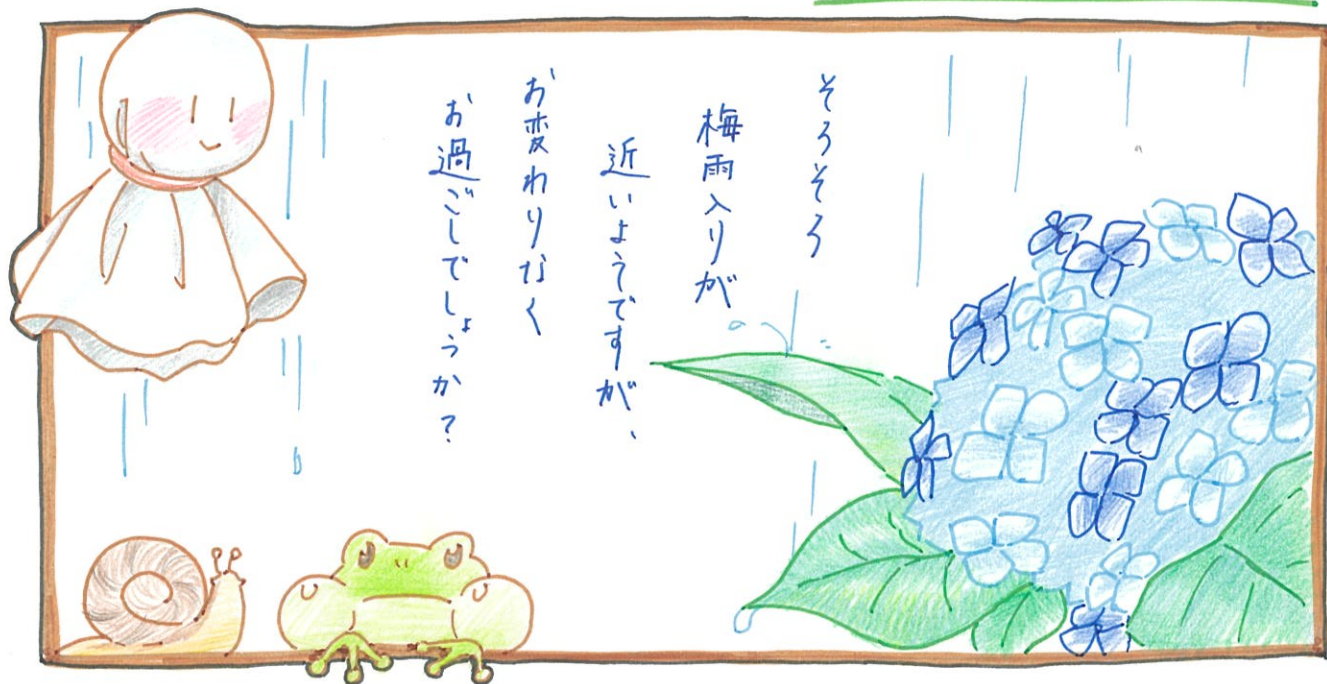 そろそろ
梅雨入りが
近いようですが、
お変わりなく
お過ごしでしょうか？